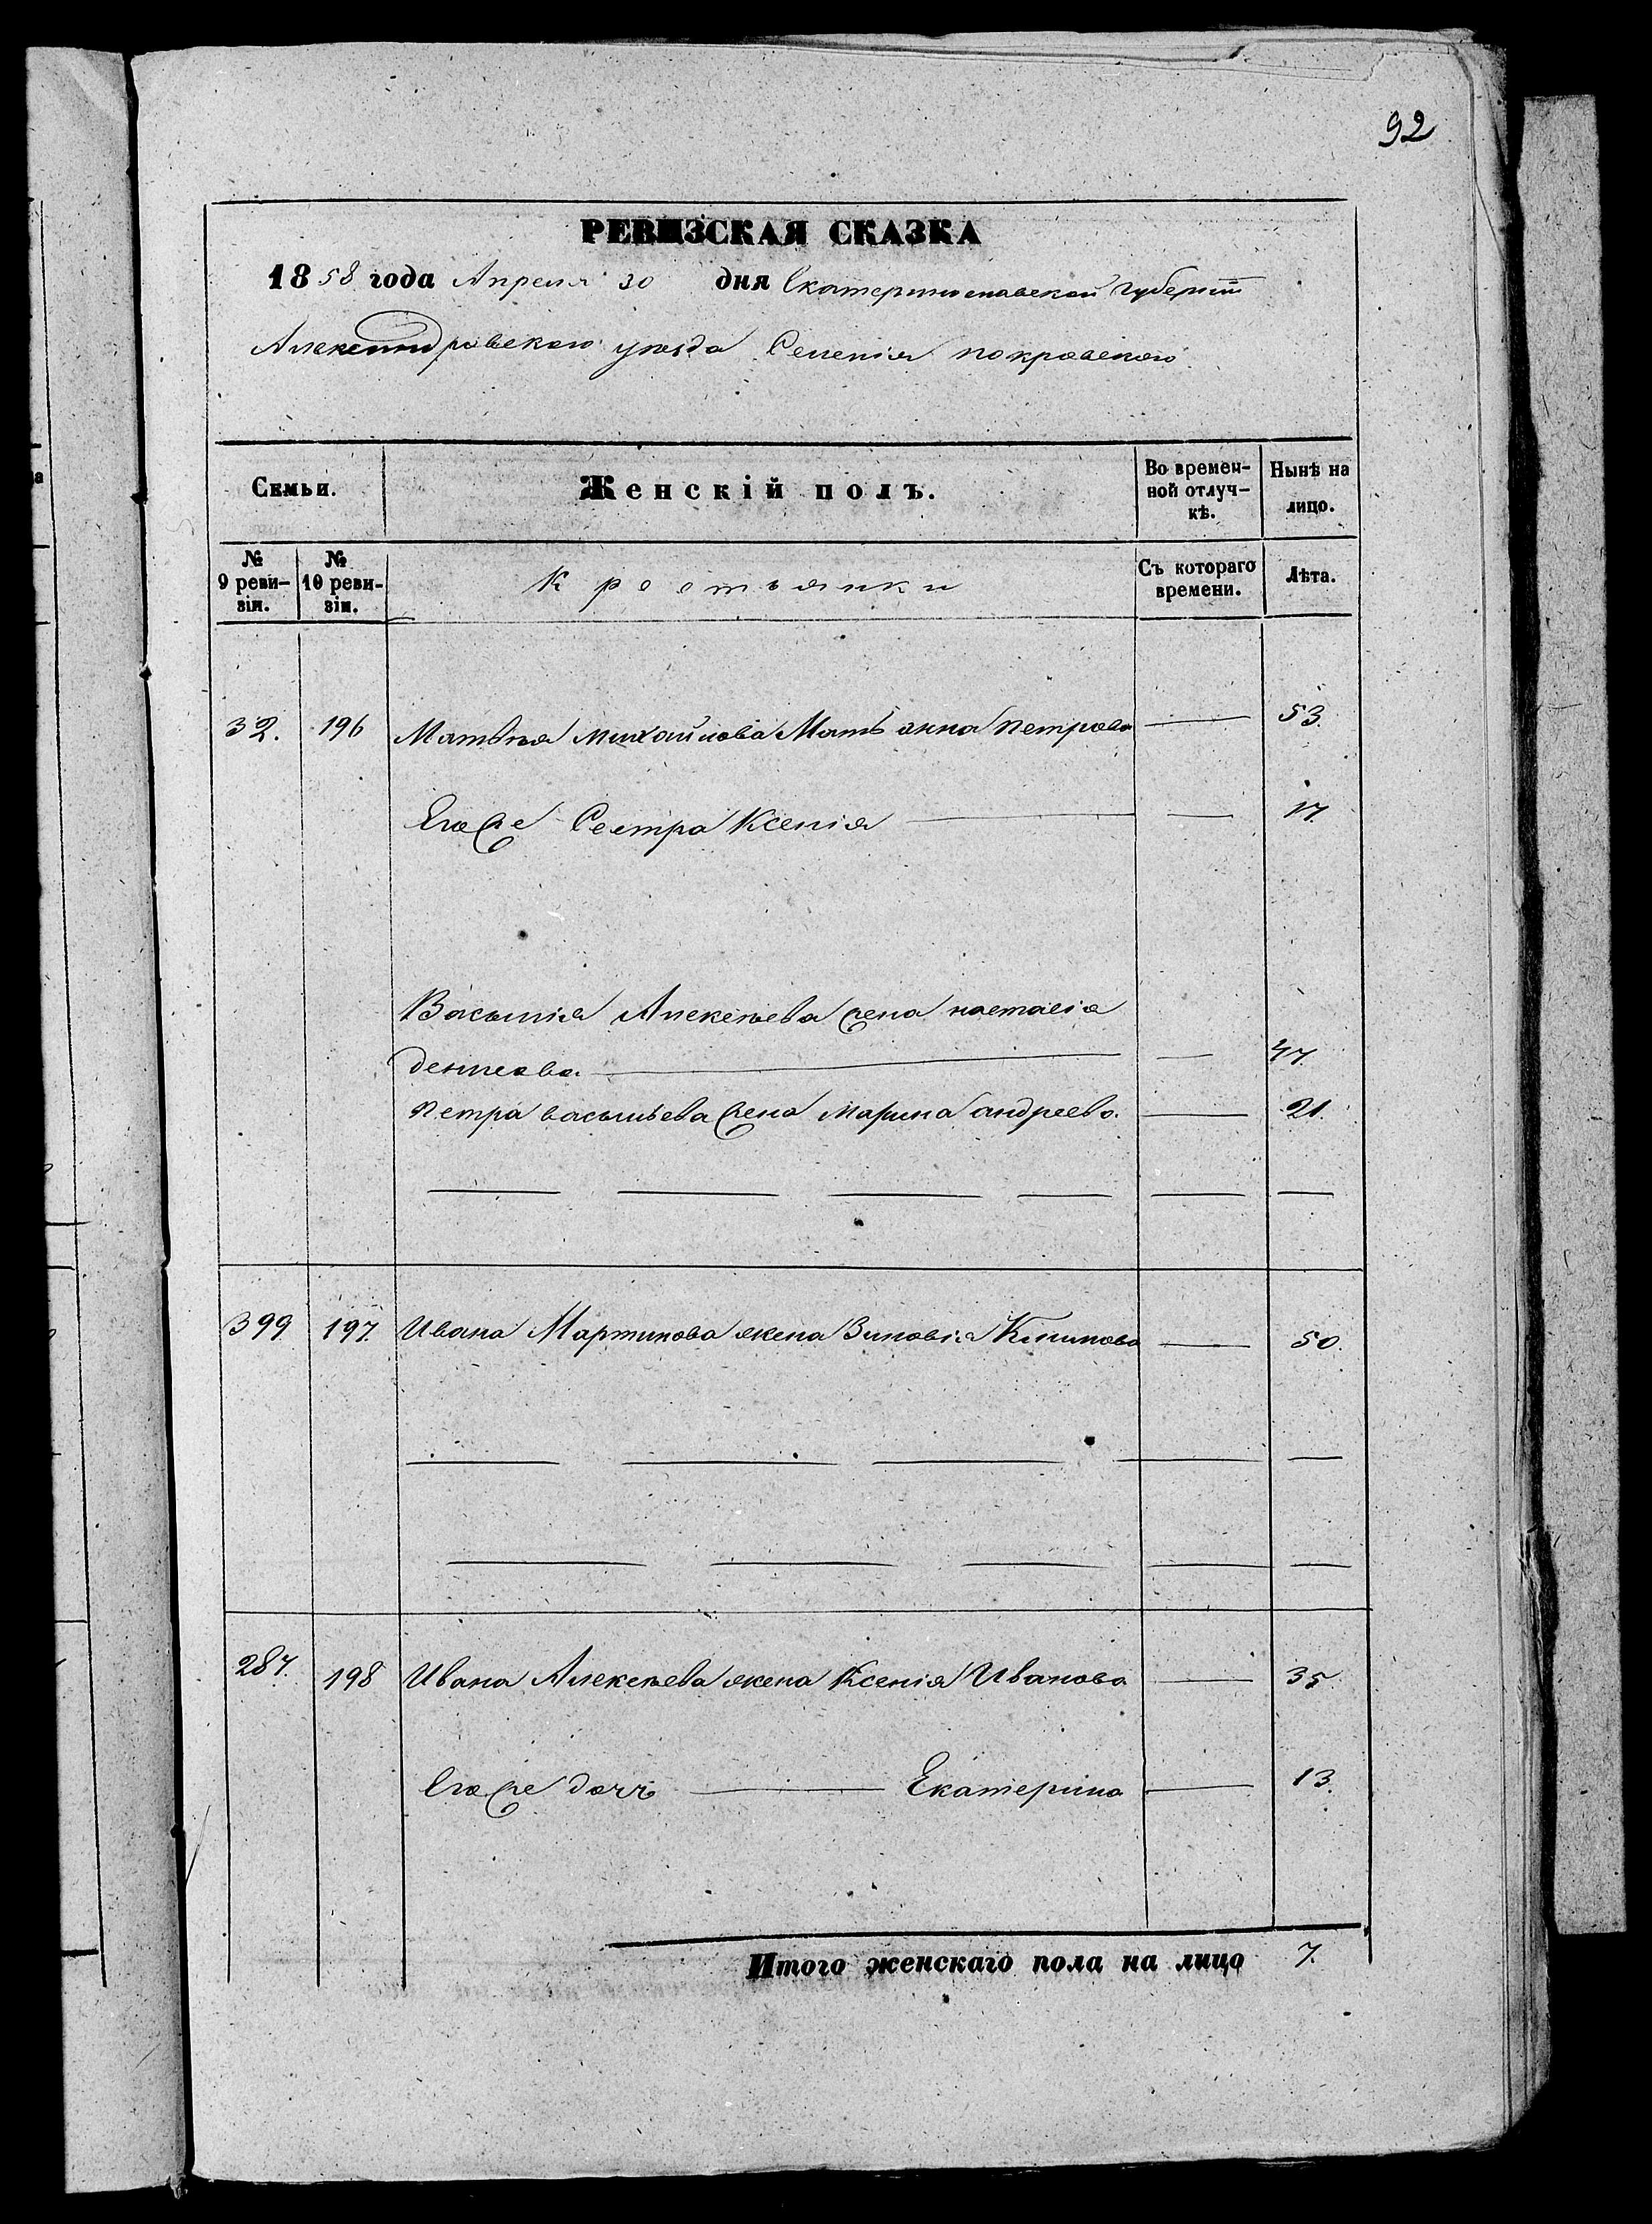 92
РЕВИЗСКАЯ СКАЗКА
1858 года Апреля 30 дня Екатеринославской Губерніи
Александровскаго уѣзда Селенія покровскаго
Семьи.
Женскій полъ.
Во времен-
ной отлуч-
кѣ.
Нынѣ на
лицо.
№
9 реви-
зіи.
№
10 реви-
зіи.
Крестьянки
Съ котораго
времени.
Лѣта.
32. 196 Матвѣя михайлова Мать анна петрова — 53.
Его же Сестра Ксенія — — 17.
Василія Алексѣева жена настасія
денисова — — 47.
петра васильева жена марина андреева. — 21.
399 197. Ивана Мартинова жена Зиновія Климова — 50.
287. 198 Ивана Алексѣева жена Ксенія Иванова — 35
Его же дочь — Екатерина — 13.
Итого женскаго пола на лицо 7.